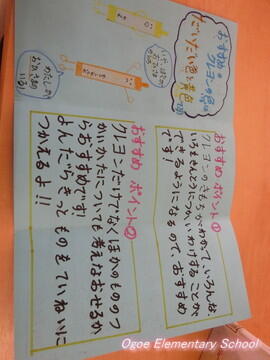 おすすめの
クレヨンの色は
だいだい色と黄色
です
わたしが
おひさまの
いろ!
おすすめ ポイント①
クレヨンのきもちがわかって、いろんな
できるようになるので、おすすめ
です!
おすすめ ポイント②
クレヨンだけでなくほかのもののつ
かいかたについても考えなおせるか
らおすすめです!
よんだらきっとものをていねいに
つかえるよ!!
Ogoe Elementary School